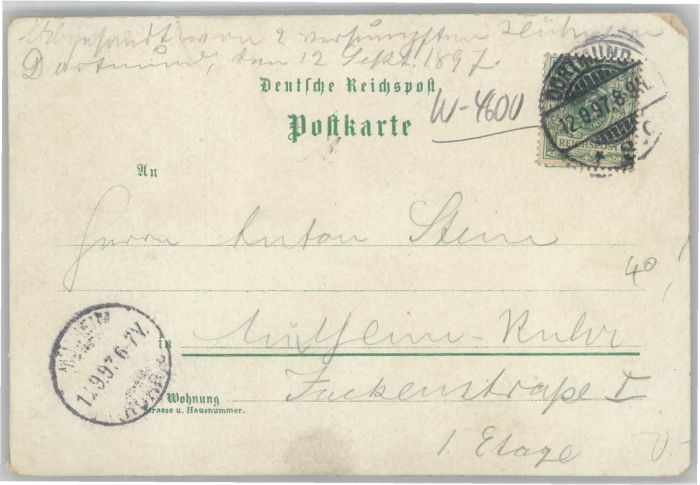 Abgesandt von 2 versumpften
Dortmund, den 12 Sept. 1897.
Deutsche Reichspost
Postkarte
W-4600
DORTMUND
12.9.97.8-9N.
REICHSPOST
An
Herrn Anton Stein
40,
in Mülheim-Ruhr
12.9.97.6-7V.
(RUHR)
Wohnung
Strasse u. Hausnummer.
I
1. Etage